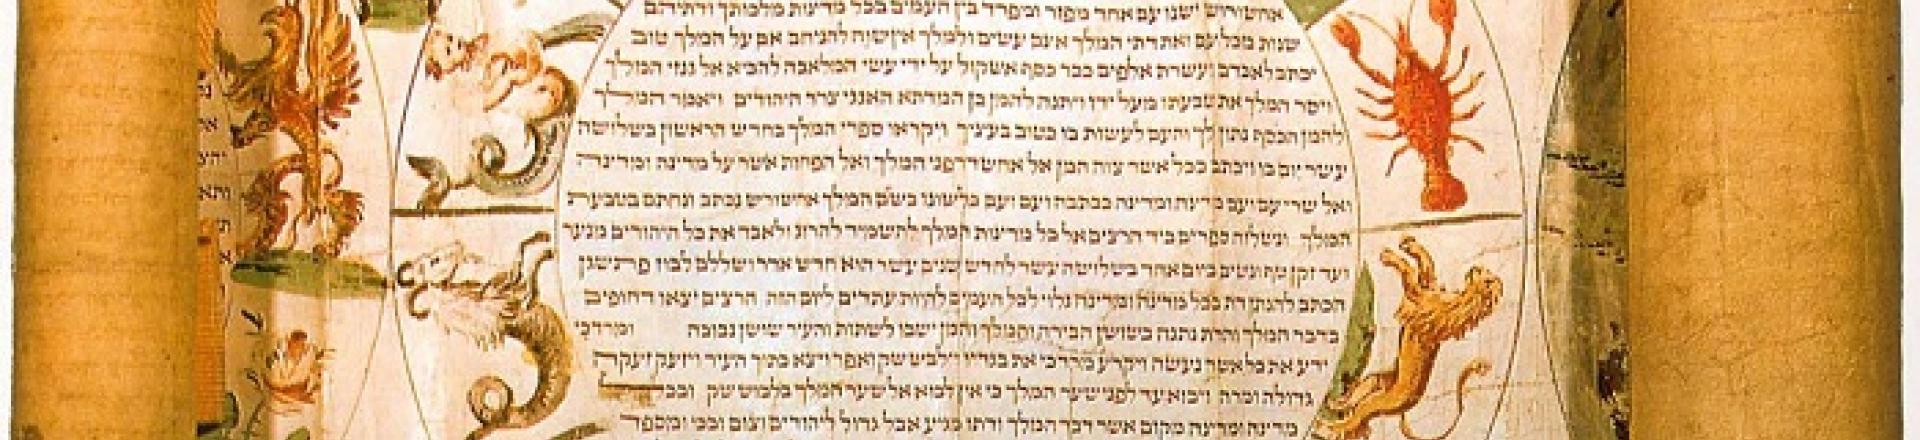 אחשורוש ישנו עם אחד מפזר ומפרד בין העמים בכל מדינות מלכותך ודתיהם
שנות מכל עם ואת דתי המלך אינם עשים ולמלך אין שוה להניחם אם על המלך טוב
יכתב לאבדם ועשרת אלפים ככר כסף אשקול על ידי עשי המלאכה להביא אל גנזי המלך
ויסר המלך את טבעתו מעל ידו ויתנה להמן בן המדתא האגגי צרר היהודים ויאמר המלך
להמן הכסף נתון לך והעם לעשות בו כטוב בעיניך ויקראו ספרי המלך בחדש הראשון בשלושה
עשר יום בו ויכתב ככל אשר צוה המן אל אחשדרפני המלך ואל הפחות אשר על מדינה ומדינה
ואל שרי עם ועם מדינה ומדינה ככתבה ועם ועם כלשונו בשם המלך אחשורש נכתב ונחתם בטבעת
המלך ונשלוח ספרים ביד הרצים אל כל מדינות המלך להשמיד להרג ולאבד את כל היהודים מנער
ועד זקן טף ונשים ביום אחד בשלושה עשר לחדש שנים עשר הוא חדש אדר ושללם לבוז פתשגן
הכתב להנתן דת בכל מדינה ומדינה גלוי לכל העמים להיות עתדים ליום הזה הרצים יצאו דחופים
בדבר המלך והדת נתנה בשושן הבירה והמלך והמן ישבו לשתות והעיר שושן נבוכה ומרדכי
ידע את כל אשר נעשה ויקרע מרדכי את בגדיו וילבש שק ואפר ויצא בתוך העיר ויזעק זעקה
גדולה ומרה ויבוא עד לפני שער המלך כי אין לבוא אל שער המלך בלבוש שק ובכל
מדינה ומדינה מקום אשר דבר המלך ודתו מגיע אבל גדול ליהודים וצום ובכי ומספד